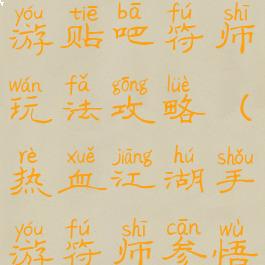 yóu tiē bā fú shī
游贴吧符师
wán fǎ gōng lüè
玩法攻略（
rè xuě jiāng hú shǒu
热血江湖手
yóu fú shī cān wù
游符师参悟